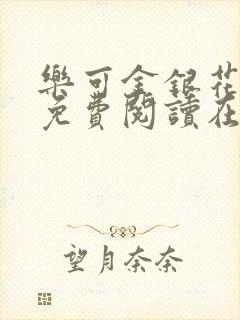 樂可金銀花
免費閱讀在
望月奈奈